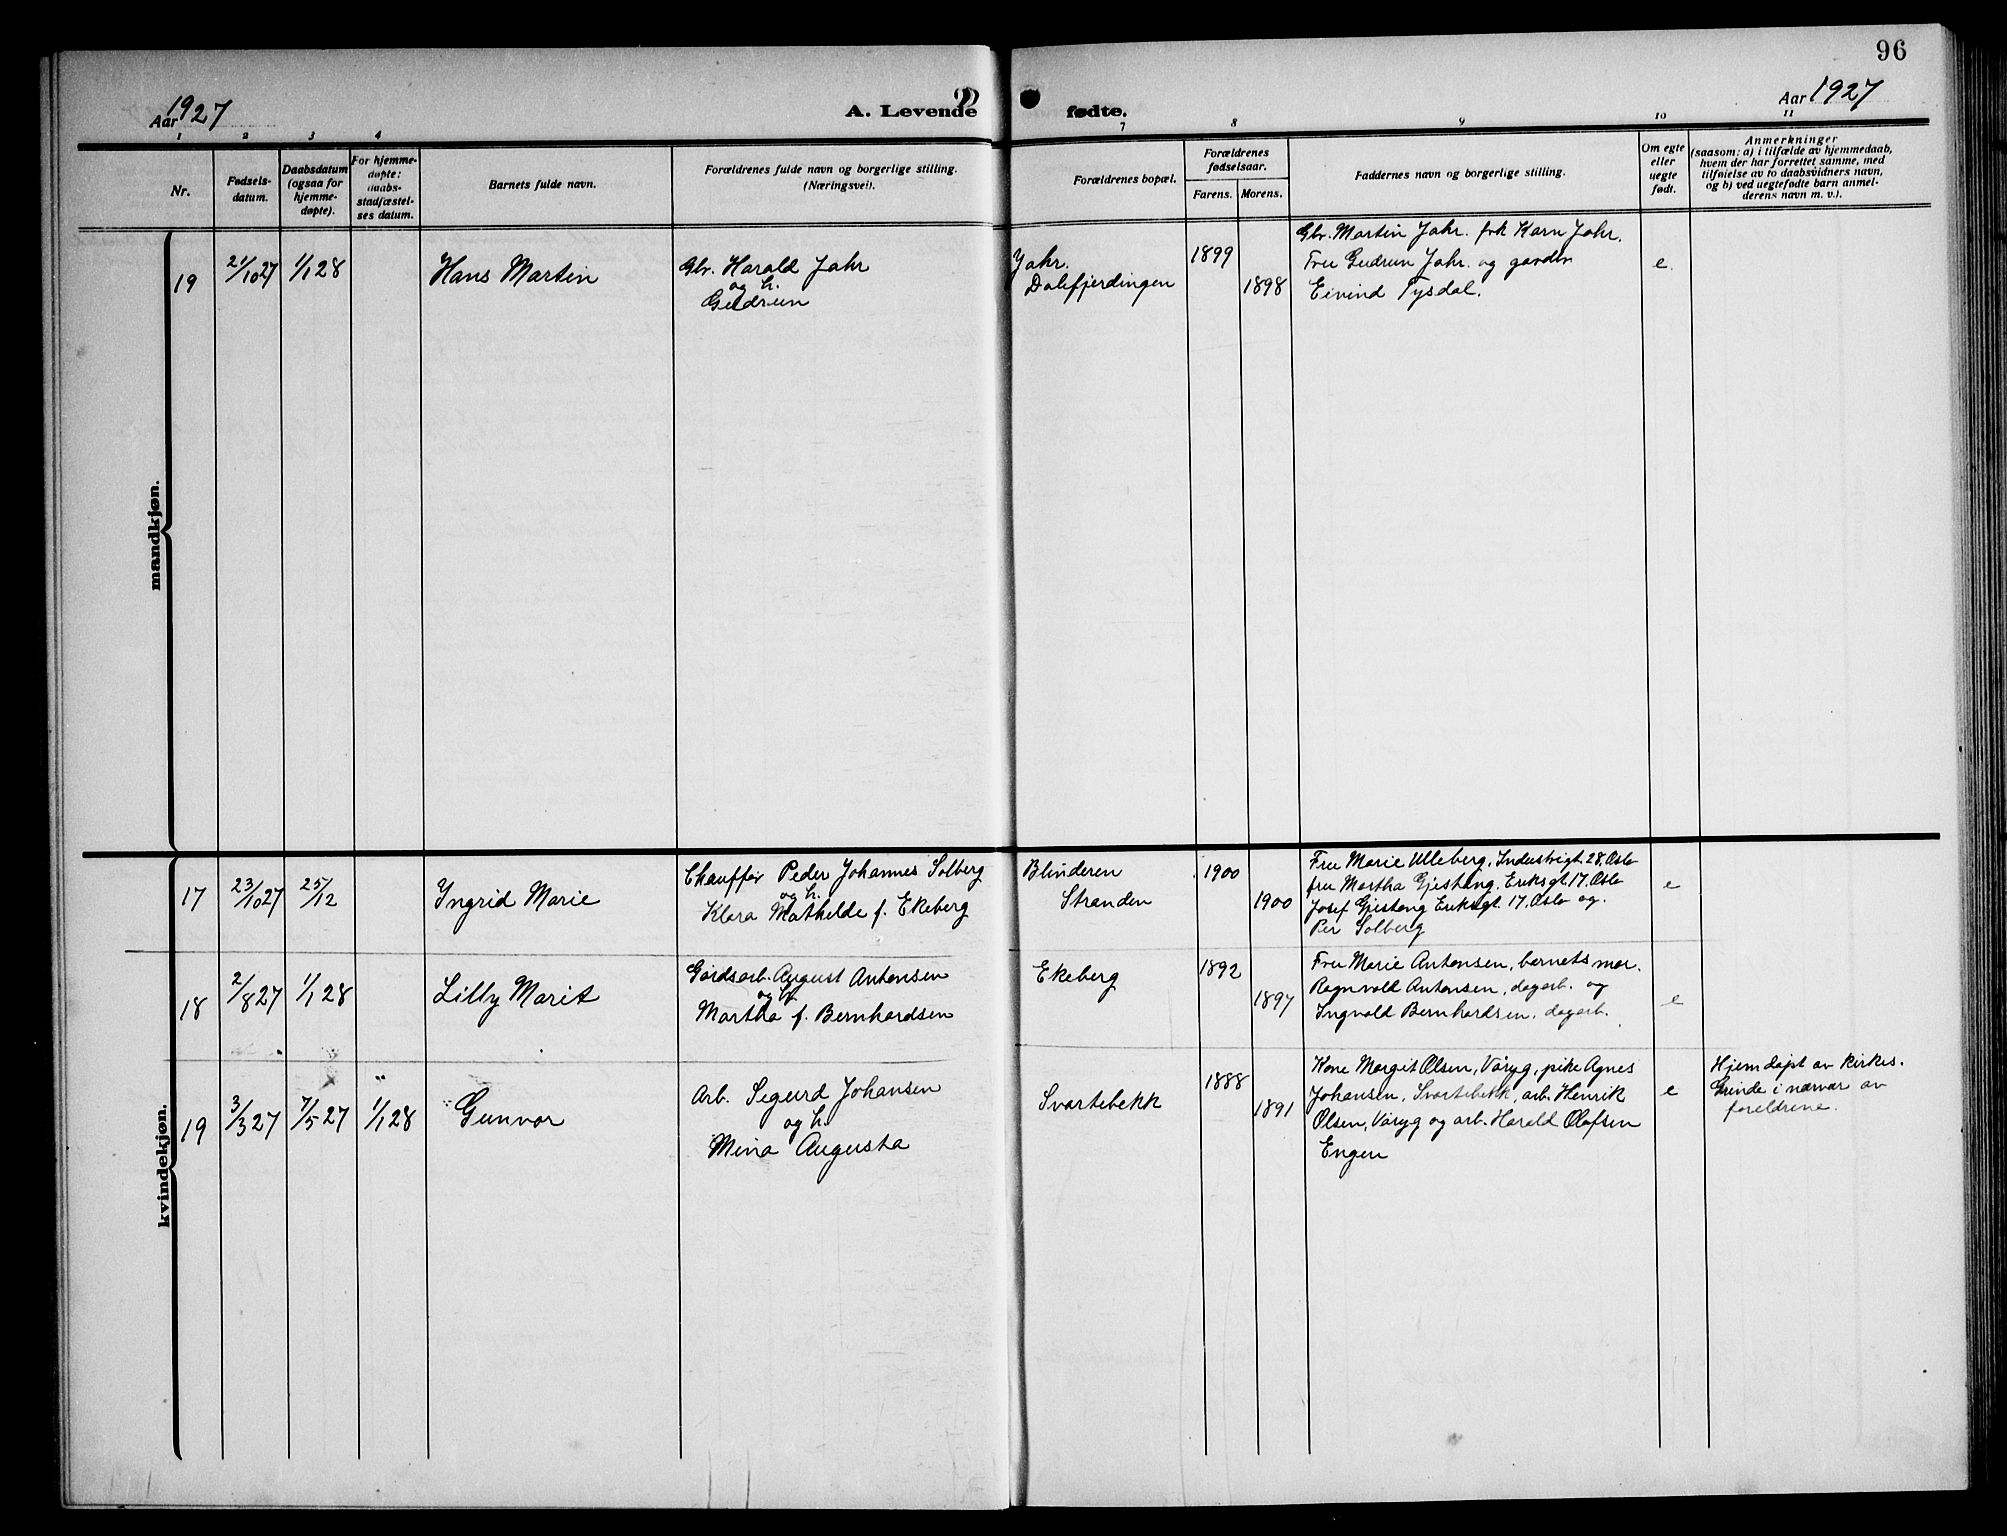 96
Aar 1927
A. Levende
fødte.
Aar 1927
1 2 3 4 7 8 9 10 11
Nr.
Fødsels-
datum.
Daabsdatum
(ogsaa for
hjemme-
døpte).
For hjemme-
døpte:
daabs-
stadfæstel-
ses datum.
Barnets fulde navn.
Forældrenes fulde navn og borgerlige stilling.
(Næringsvei).
Forældrenes bopæl.
Forældrenes
fødselsaar.
Farens. Morens.
Faddernes navn og borgerlige stilling.
Om egte
eller
uegte
født.
Anmerkninger
(saasom: a) i tilfælde av hjemmedaab,
hvem der har forrettet samme, med
tilføielse av to daabsvidners navn,
og b) ved uegtefødte barn anmel-
derens navn m. v.).
mandkjøn.
19
21/10 27
1/1 28
Hans Martin
Gbr. Harald Jahr
og h.
Gudrun
Jahr.
Dalefjerdingen
1899
1898
Gbr. Martin Jahr. frk Karn Jahr.
Fru Gudrun Jahr. og gardbr
Eivind Tysdal.
e.
kvindekjøn.
17
23/10 27
25/12
Ingrid Marie
Chauffør Peder Johannes Solberg
og h.
Klara Mathilde f. Ekeberg
Blinderen
Stranden
1900
1900
Fru Marie Ulleberg, Industrigt. 28, Oslo
fru Martha Gjestang, Eriksgt 17, Oslo
Josef Gjestang Eriksgt 17, Oslo og.
Per Solberg
e
18
2/8 27
1/1 28
Lilly Marit
Gårdsarb. August Antonsen
og h.
Martha f. Bernhardsen
Ekeberg
1892
1897
Fru Marie Antonsen, barnets mor.
Ragnvald Antonsen, dagarb. og
Ingvald Bernhardsen, dagarb.
e
19
3/3 27
7/5 27
1/1 28
Gunvor
Arb. Sigurd Johansen
og h.
Mina Augusta
Svartebekk
1888
1891
Kone Margit Olsen, Våryg, pike Agnes
Johansen, Svartebekk, arb. Henrik
Olsen, Våryg og arb. Harald Olafsen
Engen
e
Hjemdøpt av kirkes.
Grinde i nærvær av
foreldrene.